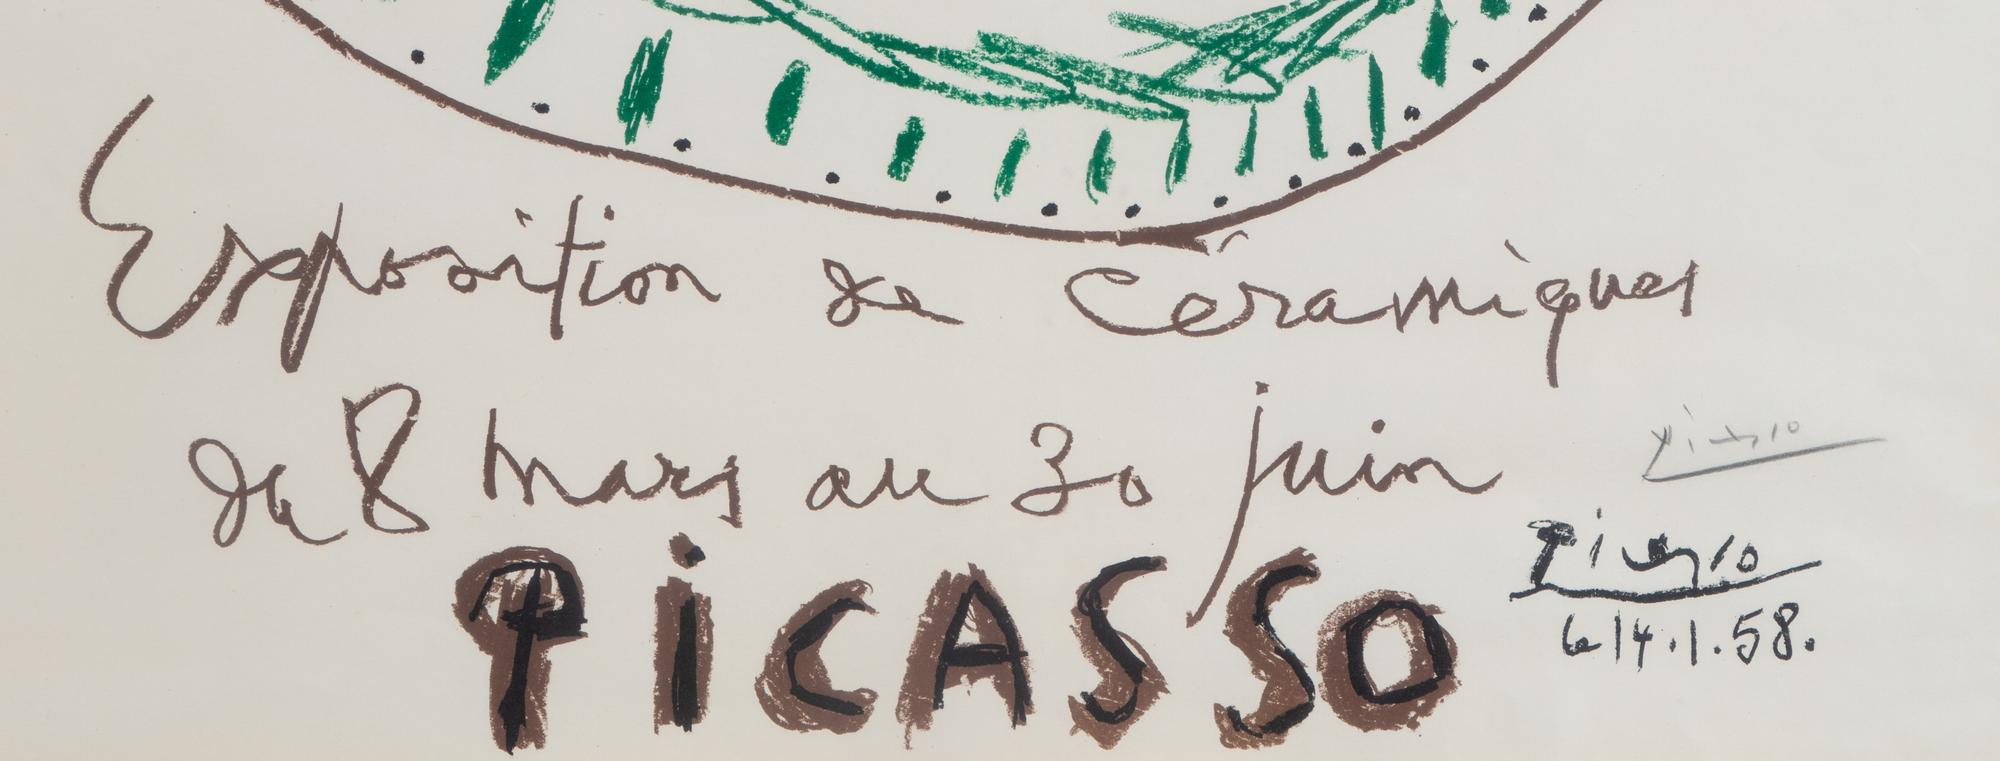 Exposition de Céramiques
du 8 mars au 30 juin
Picasso
PiCASSO
Picasso
le 14.1.58.